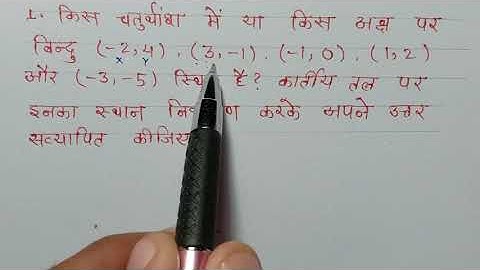 1. किस चतुर्थांश में या किस अक्ष पर
बिन्दु (-2,4), (3,-1), (-1,0), (1,2)
x y
और (-3,-5) है? कार्तीय तल पर
इनका स्थान करके अपने उत्तर
सत्यापित कीजिए